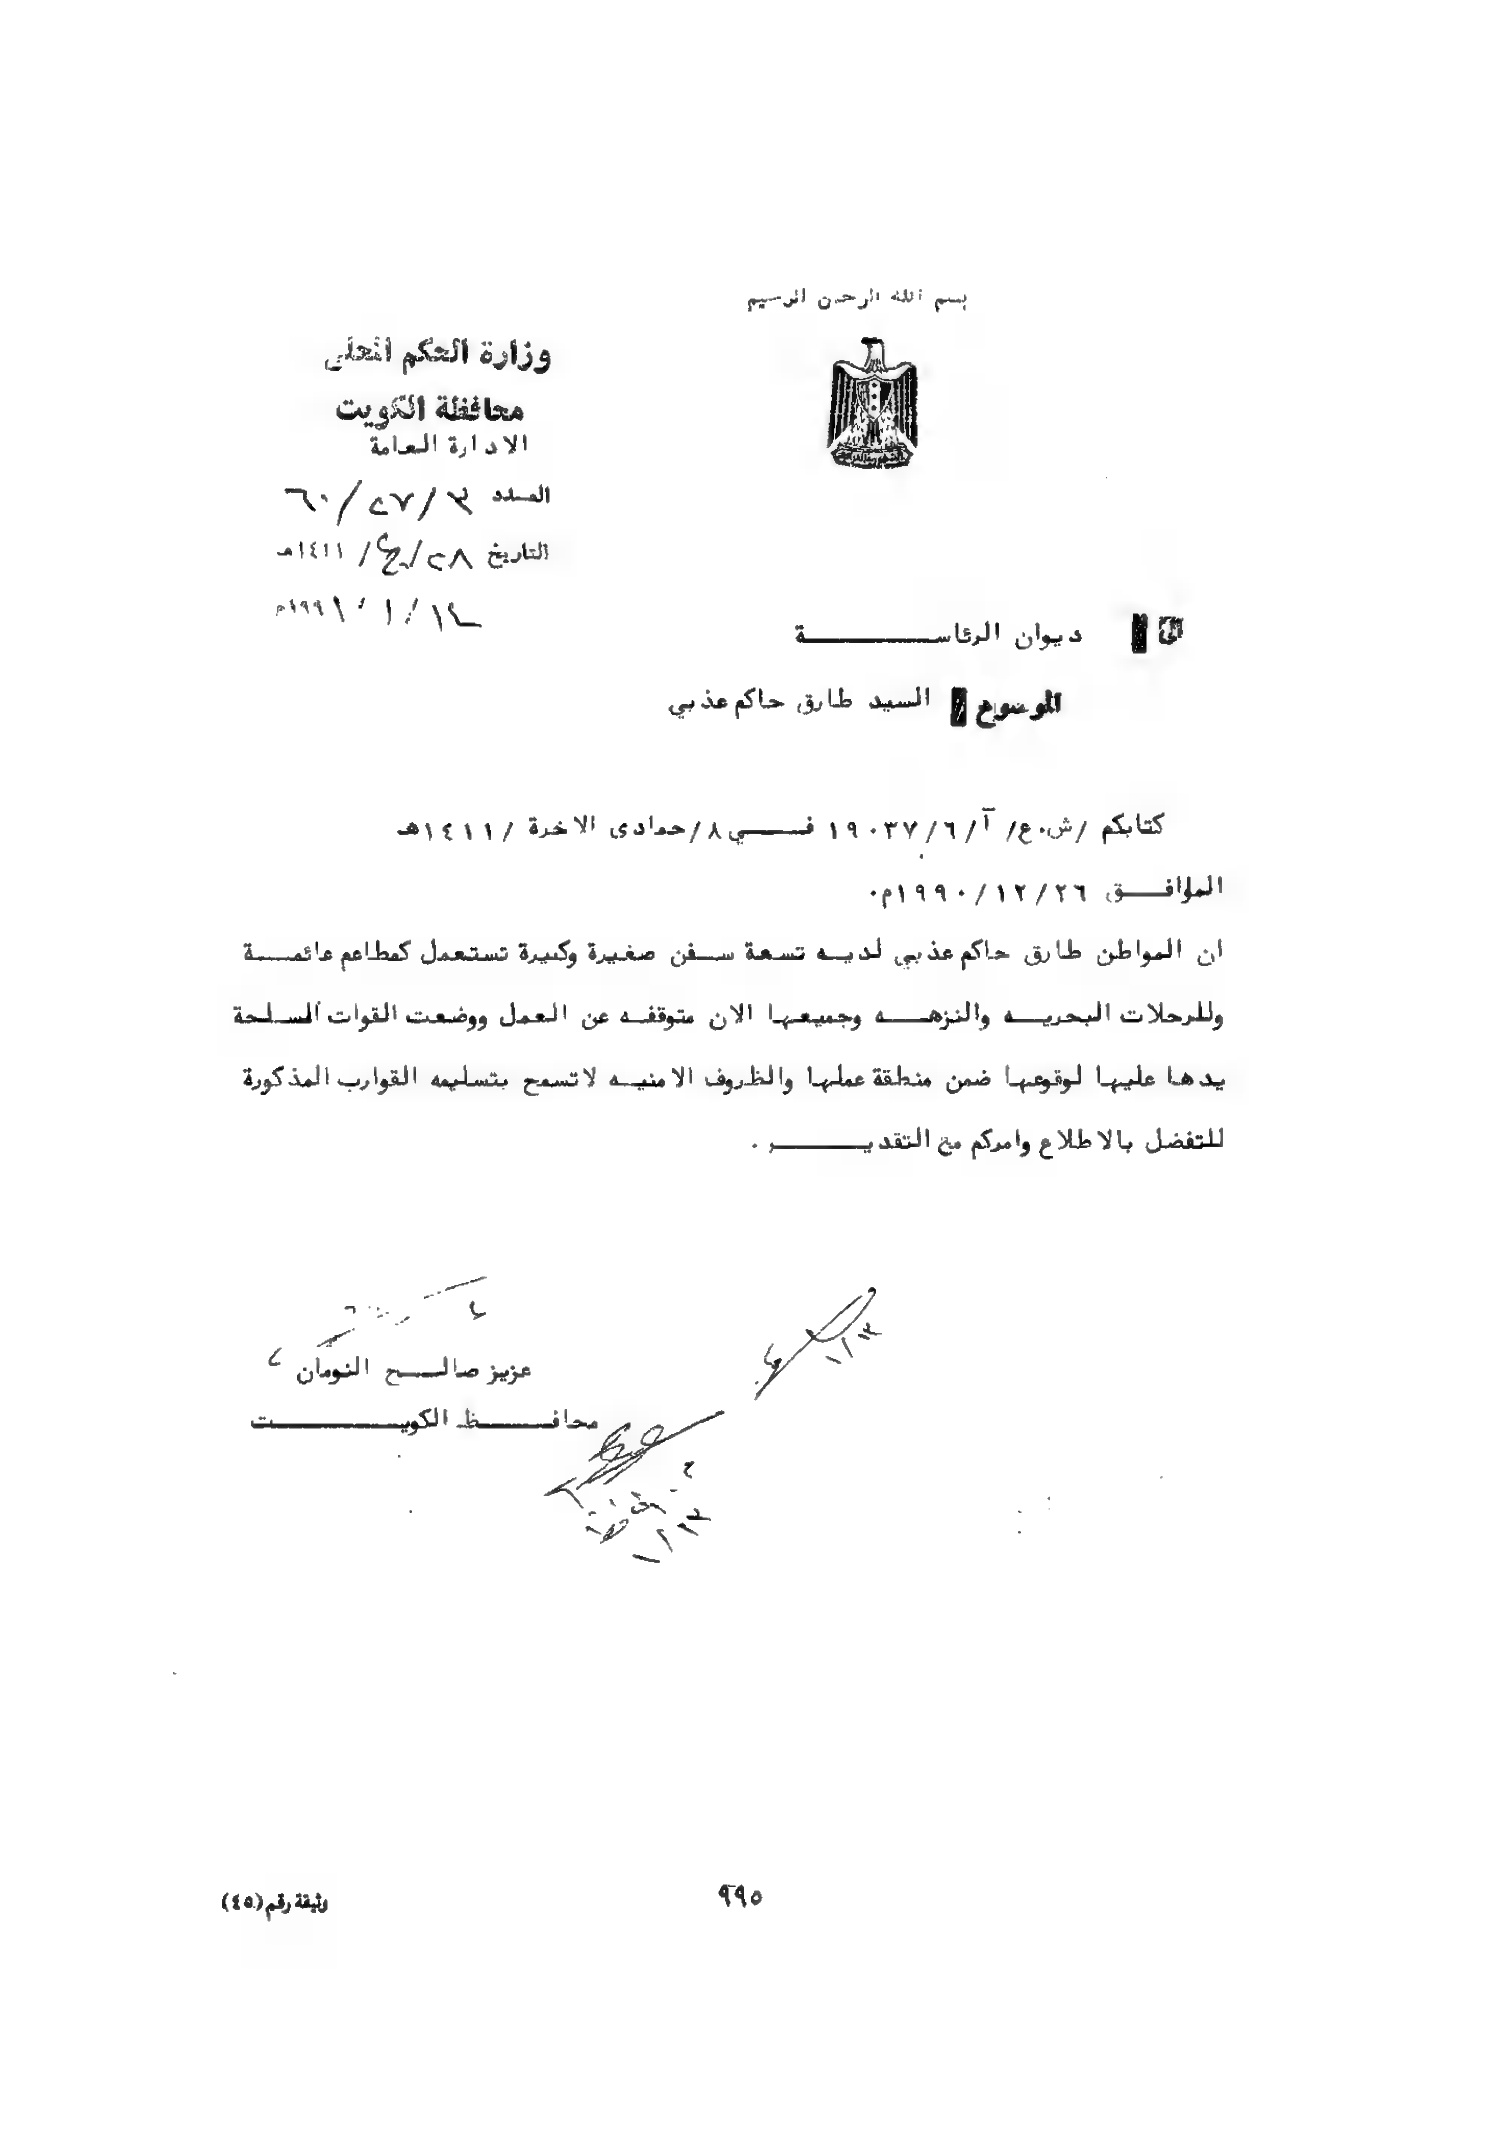 بسم الله الرحمن الرحيم
وزارة الحكم المحلي
محافظة الكويت
الادارة العامة
العدد ٣/٢٧/٦٠
التاريخ ٢٨/ج٢/١٤١١هـ
١٤/١/١٩٩١م
الى
ديوان الرئاســـــــــة
الموضوع السيد طارق حاكم عذبي
كتابكم /ش.ع/ آ/٦/١٩٠٣٧ فـــي٨/جمادى الاخرة /١٤١١هـ
الموافــــق ١٩٩٠/١٢/٢٦م.
ان المواطن طارق حاكم عذبي لديـه تسعة سـفن صغيرة وكبيرة تستعمل كمطاعم عائمـــة
وللرحلات البحريــه والنزهـــه وجميعهـا الان متوقفـه عن العمل ووضعت القوات السـلحة
يدها عليها لوقوعها ضمن منطقة عملها والظروف الامنيـه لاتسمح بتسليمه القوارب المذكورة
للتفضل بالاطلاع وامركم مع التقديــــــر .
عزيز صالــح النومان
محافـــــظ الكويـــــــــت
١/١٣
١/١٣
٩٩٥
وثيقة رقم (٤٥)